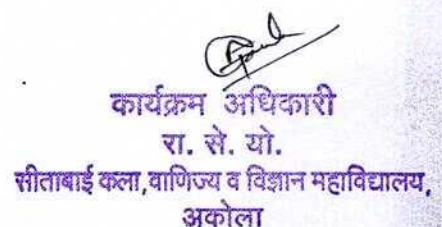 कार्यक्रम अधिकारी
रा. से. यो.
सीताबाई कला, वाणिज्य व विज्ञान महाविद्यालय,
अकोला